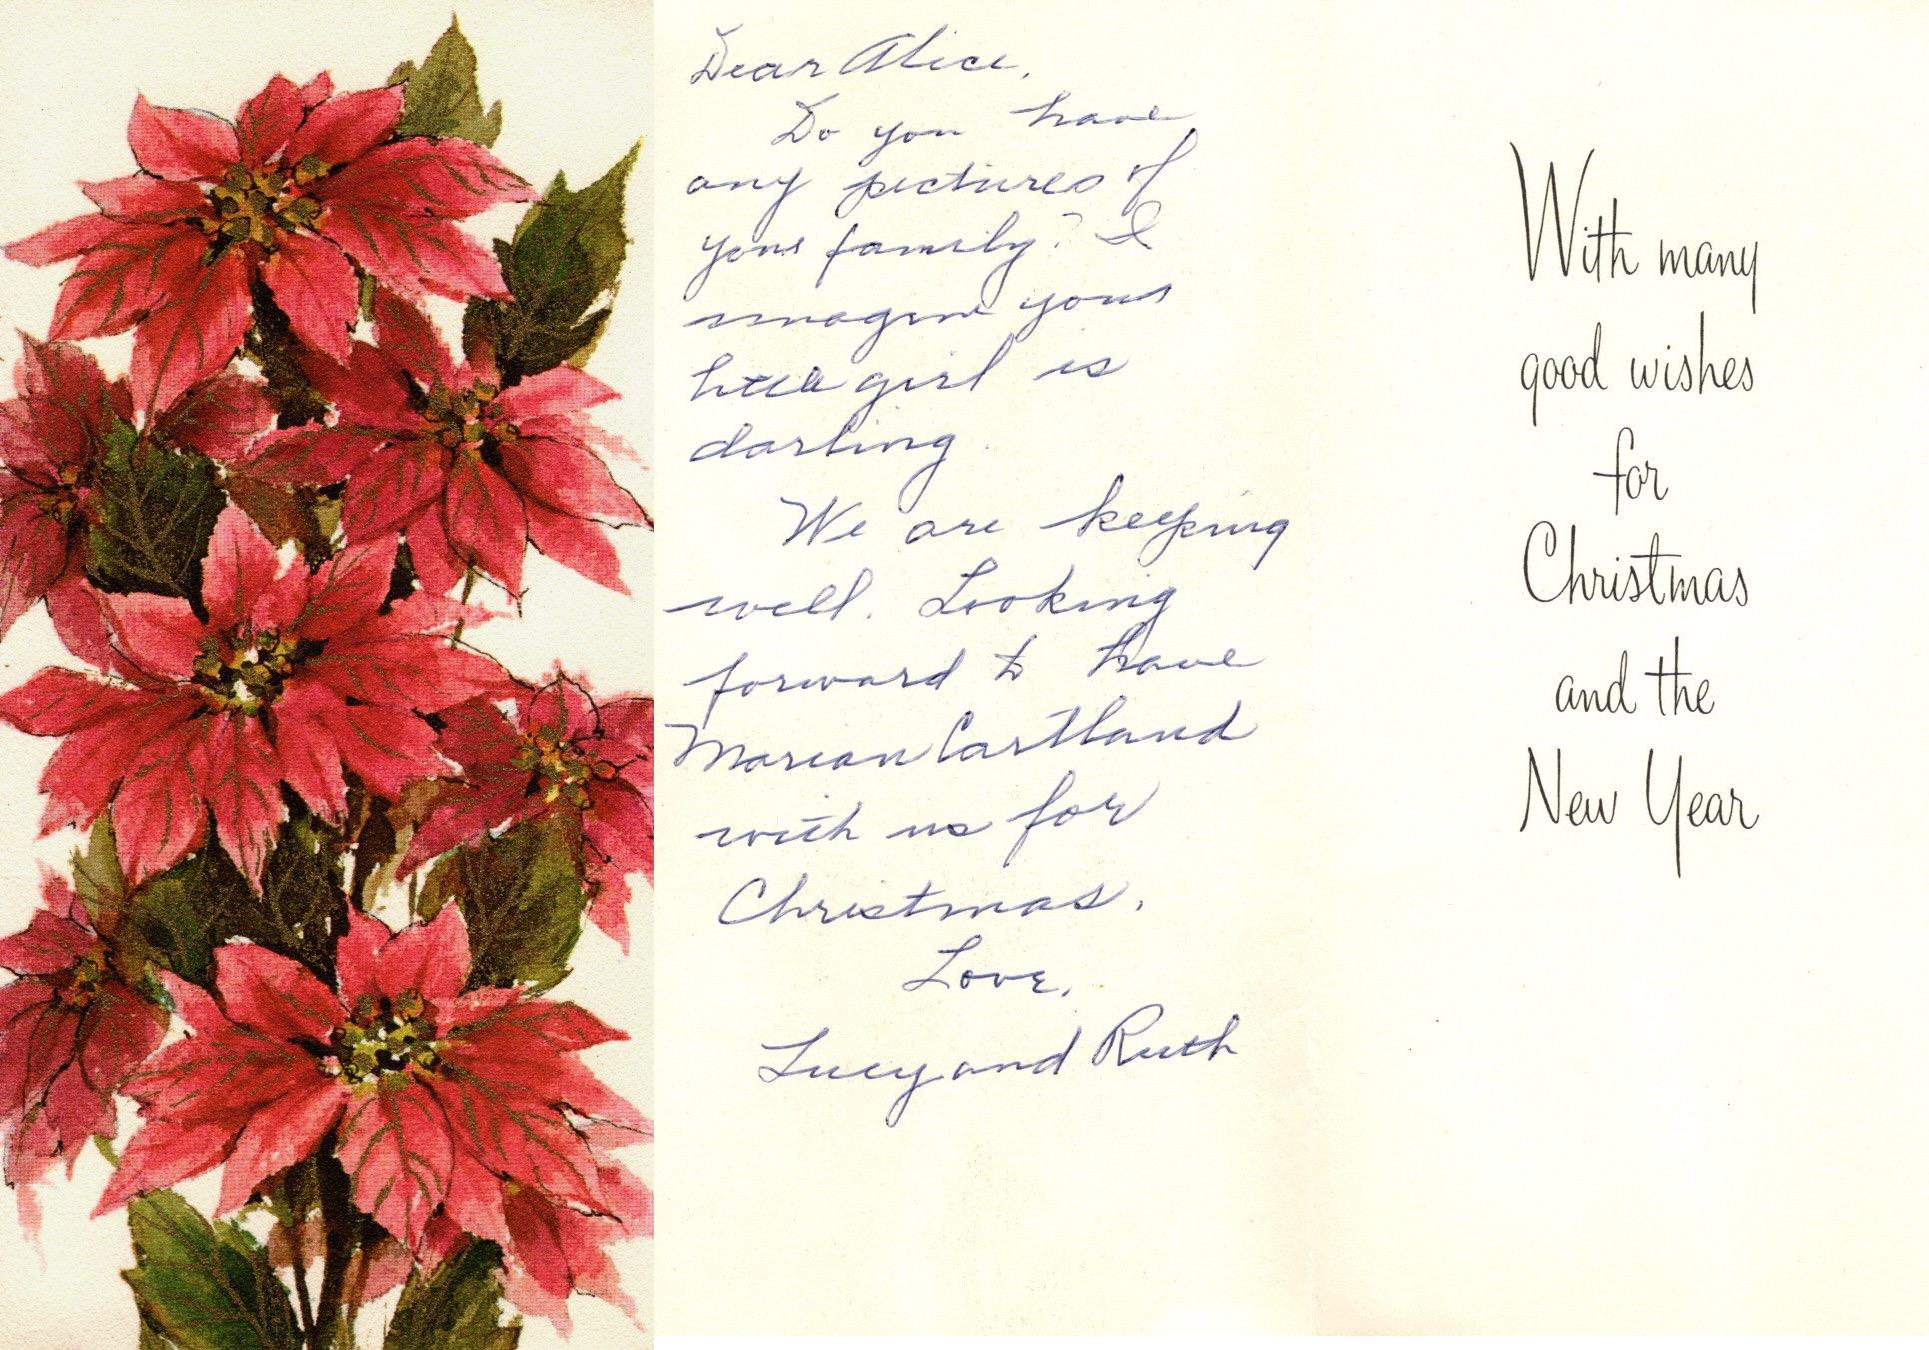 Dear Alice,
Do you have
any pictures of
your family? I
imagine your
little girl is
darling.
We are keeping
well. Looking
forward to have
Marian Cartland
with us for
Christmas.
Love,
Lucy and Ruth
With many
good wishes
for
Christmas
and the
New Year